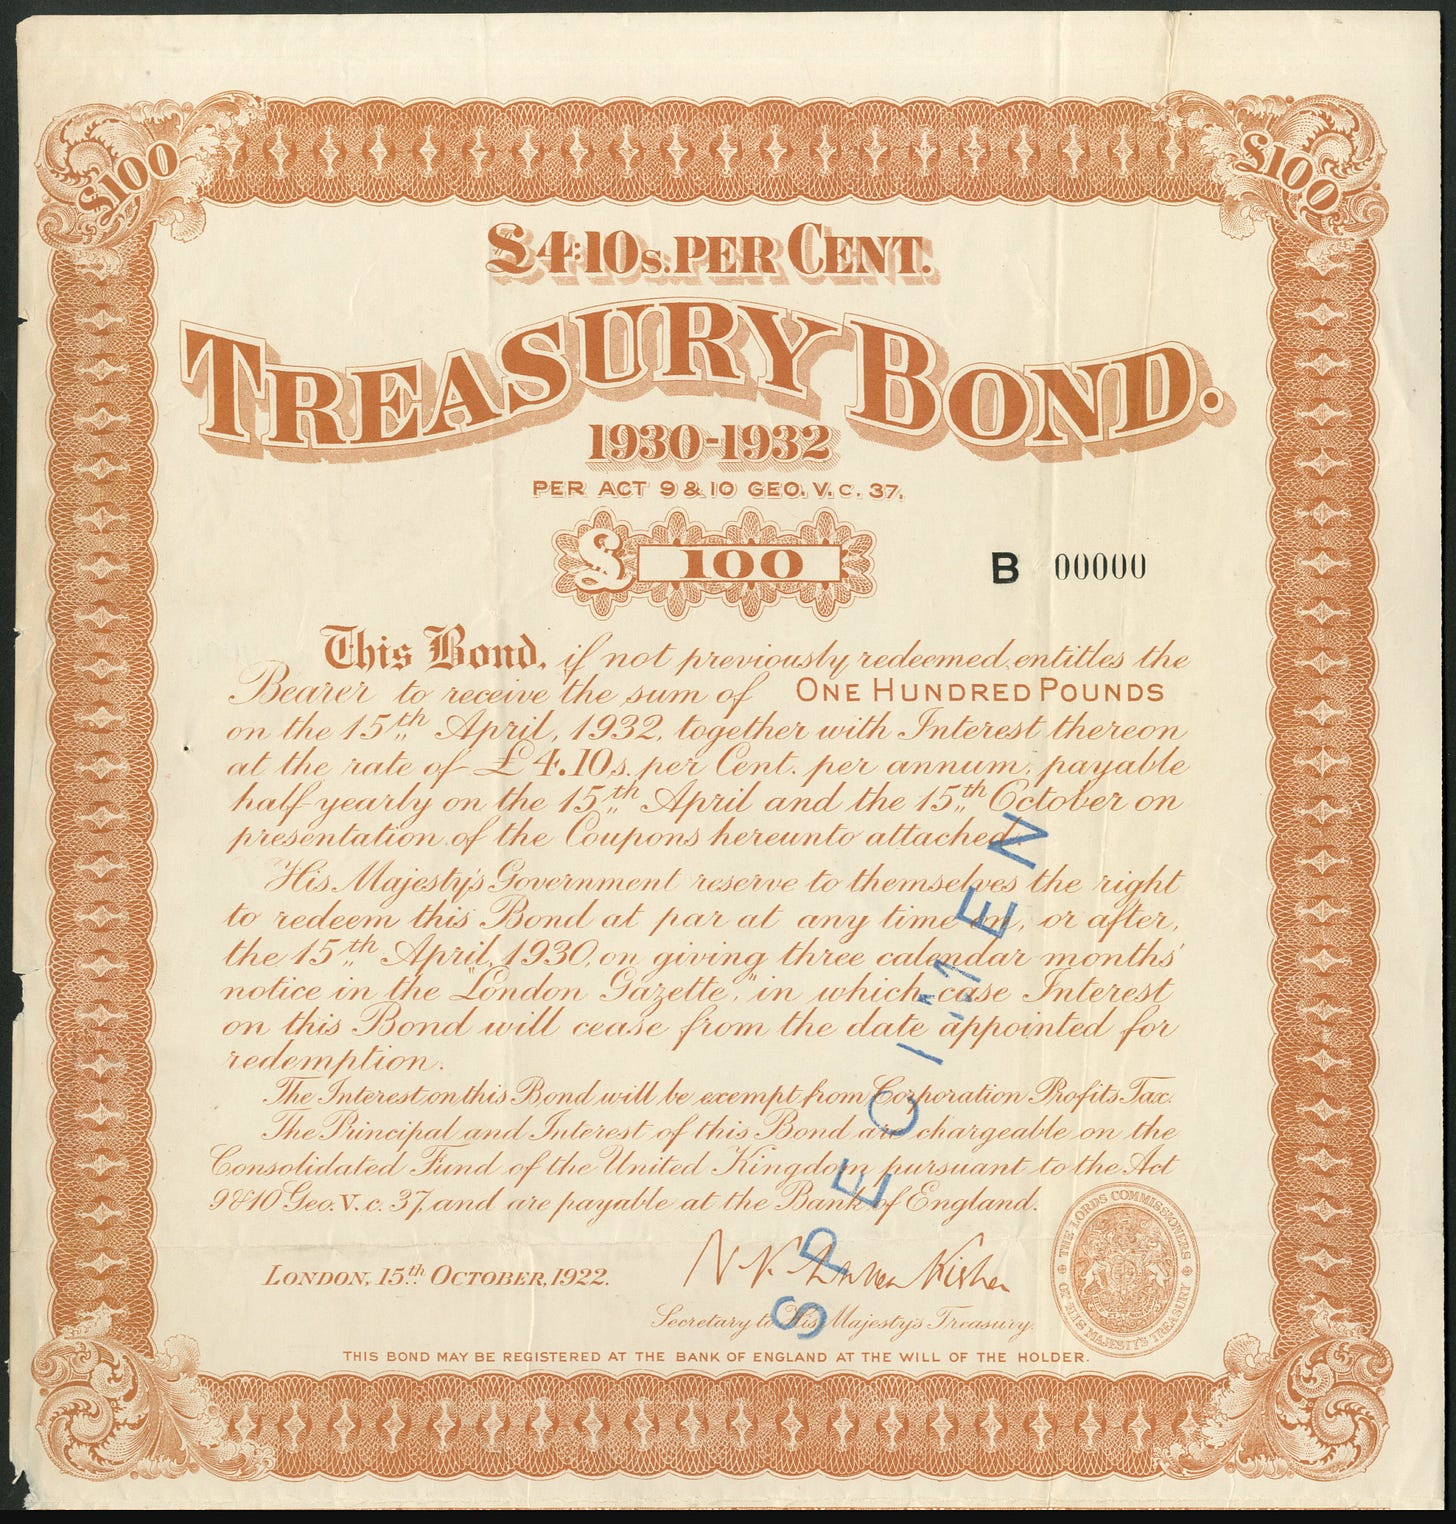 £100
£100
£4:10s. PER CENT.
TREASURY BOND.
1930-1932
PER ACT 9 & 10 GEO. V. C. 37.
£ 100
B 00000
This Bond, if not previously redeemed, entitles the
Bearer to receive the sum of ONE HUNDRED POUNDS
on the 15th April, 1932, together with Interest thereon
at the rate of £4.10s. per Cent. per annum, payable
half-yearly on the 15th April and the 15th October on
presentation of the Coupons hereunto attached.
His Majesty's Government reserve to themselves the right
to redeem this Bond at par at any time on, or after,
the 15th April, 1930, on giving three calendar months'
notice in the "London Gazette", in which case Interest
on this Bond will cease from the date appointed for
redemption.
The Interest on this Bond will be exempt from Corporation Profits Tax.
The Principal and Interest of this Bond are chargeable on the
Consolidated Fund of the United Kingdom pursuant to the Act
9 & 10 Geo. V. c. 37, and are payable at the Bank of England.
SPECIMEN
LONDON, 15th OCTOBER, 1922.
Secretary to His Majesty's Treasury.
THE LORDS COMMISSIONERS OF HIS MAJESTY'S TREASURY
THIS BOND MAY BE REGISTERED AT THE BANK OF ENGLAND AT THE WILL OF THE HOLDER.